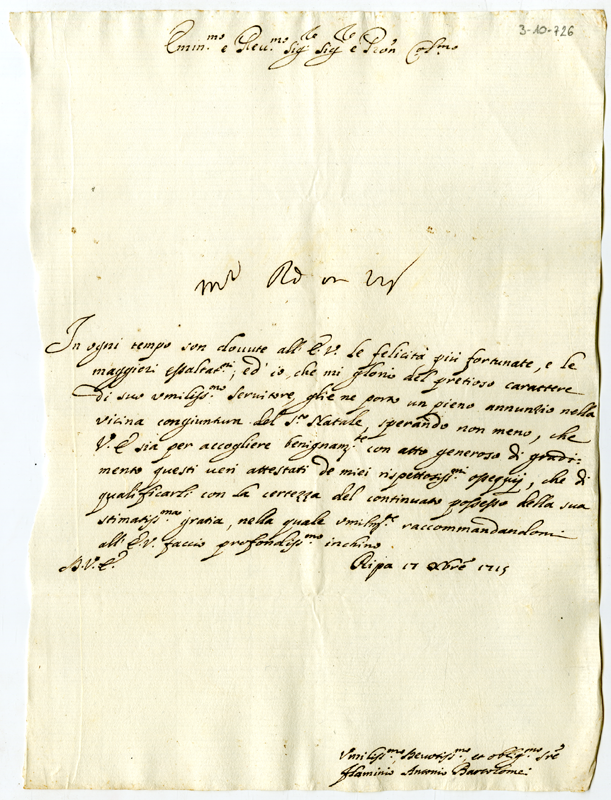 3-10-726
Emin.mo e Rev.mo Sig.re Sig.re e Pron Col.mo
In ogni tempo son dovute all'E.V. le felicità più fortunate, e le
maggiori essaltat.ni; ed io, che mi glorio del pretioso carattere
di suo umiliss.mo servitore, glie ne porto un pieno annunzio nella
vicina congiuntura del S.to Natale, sperando non meno, che
V.E. sia per accogliere benignam.te con atto generoso di gradi:
mento questi veri attestati de miei rispettosiss.mi ossequij, che di
qualificarli con la certezza del continuato possesso della sua
stimatiss.ma gratia, nella quale umilm.te raccommandandomi
all'E.V. faccio profondiss.mo inchino
D.V.E. Ripa 17 Xbre 1715
Umiliss.mo, Devotiss.mo, et oblig.mo Sre
Flaminio Antonio Bartolomei